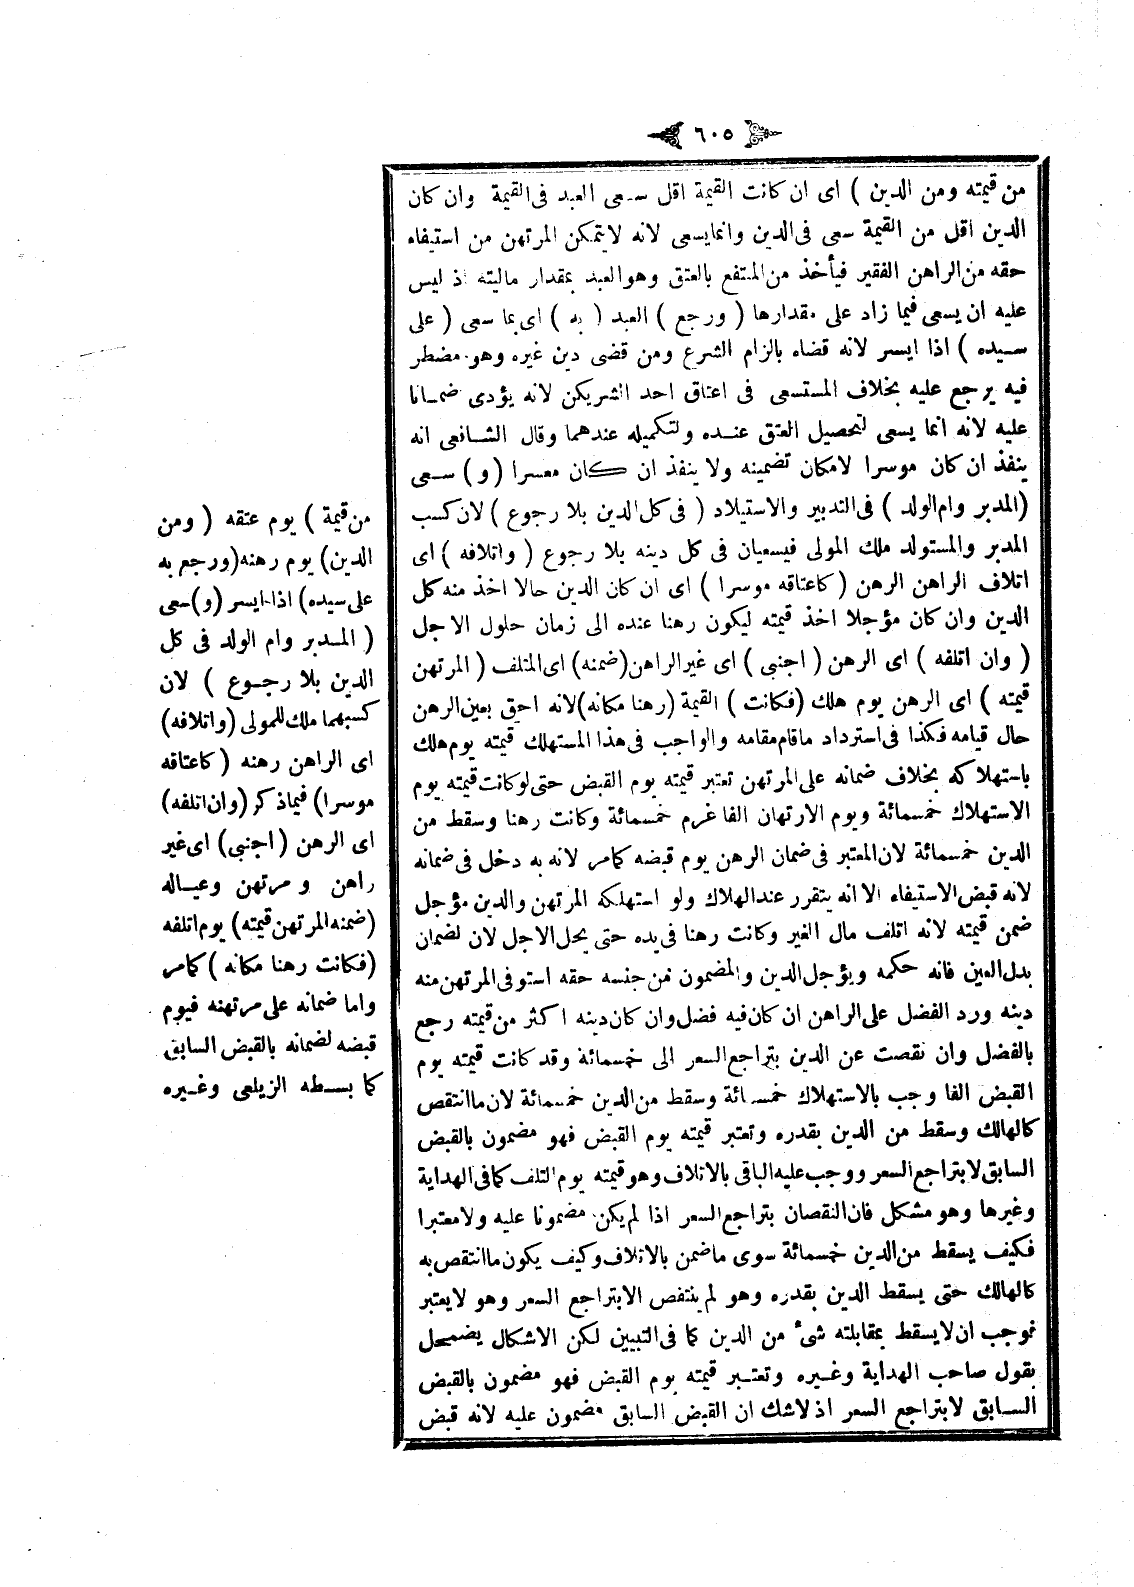 ٦٠٥
من قيمته ومن الدين ) اى ان كانت القيمة اقل سعى العبد فى القيمة وان كان
الدين اقل من القيمة سعى فى الدين وانما يسعى لانه لا يتمكن المرتهن من استيفاء
حقه من الراهن الفقير فيأخذ من المنتفع بالعتق وهو العبد بمقدار ماليته اذ ليس
عليه ان يسعى فيما زاد على مقدارها ( ورجع ) العبد ( به ) اى بما سعى ( على
سيده ) اذا ايسر لانه قضاه بالزام الشرع ومن قضى دين غيره وهو مضطر
فيه يرجع عليه بخلاف المستسعى فى اعتاق احد الشريكن لانه يؤدى ضمانا
عليه لانه انما يسعى لتحصيل العتق عنده ولتكميله عندهما وقال الشافعى انه
ينفذ ان كان موسرا لامكان تضمينه ولا ينفذ ان كان معسرا ( و ) سعى
(المدبر وام الولد ) فى التدبير والاستيلاد ( فى كل الدين بلا رجوع ) لان كسب
المدبر والمستولد ملك المولى فيسعيان فى كل دينه بلا رجوع ( واتلافه ) اى
اتلاف الراهن الرهن ( كاعتاقه موسرا ) اى ان كان الدين حالا اخذ منه كل
الدين وان كان مؤجلا اخذ قيمته ليكون رهنا عنده الى زمان حلول الاجل
( وان اتلفه ) اى الرهن ( اجنبى ) اى غير الراهن (ضمنه) اى المتلف ( المرتهن
قيمته ) اى الرهن يوم هلك (فكانت ) القيمة (رهنا مكانه) لانه احق بعين الرهن
حال قيامه فكذا فى استرداد ماقام مقامه والواجب فى هذا المستهلك قيمته يوم هلك
باستهلاكه بخلاف ضمانه على المرتهن تعتبر قيمته يوم القبض حتى لو كانت قيمته يوم
الاستهلاك خمسمائة ويوم الارتهان الفا غرم خمسمائة وكانت رهنا وسقط من
الدين خمسمائة لان المعتبر فى ضمان الرهن يوم قبضه كمامر لانه به دخل فى ضمانه
لانه قبض الاستيفاء الا انه يتقرر عند الهلاك ولو استهلكه المرتهن والدين مؤجل
ضمن قيمته لانه اتلف مال الغير وكانت رهنا فى يده حتى يحل الاجل لان لضمان
بدل العين فانه حكمه ويؤجل الدين والمضمون من جنسه حقه استوفى المرتهن منه
دينه ورد الفضل على الراهن ان كان فيه فضل وان كان دينه اكثر من قيمته رجع
بالفضل وان نقصت عن الدين بتراجع السعر الى خمسمائة وقد كانت قيمته يوم
القبض الفا وجب بالاستهلاك خمسمائة وسقط من الدين خمسمائة لان ما انتقص
كالهالك وسقط من الدين بقدره وتعتبر قيمته يوم القبض فهو مضمون بالقبض
السابق لا بتراجع السعر ووجب عليه الباقى بالاتلاف وهو قيمته يوم التلف كما فى الهداية
وغيرها وهو مشكل فان النقصان بتراجع السعر اذا لم يكن مضمونا عليه ولا معتبرا
فكيف يسقط من الدين خمسمائة سوى ماضمن بالاتلاف وكيف يكون ما انتقص به
كالهالك حتى يسقط الدين بقدره وهو لم ينتفص الا بتراجع السعر وهو لا يعتبر
فوجب ان لا يسقط بمقابلته شئ من الدين كما فى التبيين لكن الاشكال يضمحل
بقول صاحب الهداية وغيره وتعتبر قيمته يوم القبض فهو مضمون بالقبض
السابق لا بتراجع السعر اذ لاشك ان القبض السابق مضمون عليه لانه قبض
من قيمة ) يوم عتقه ( ومن
الدين) يوم رهنه (ورجع به
على سيده) اذا ايسر (و) سعى
( المدبر وام الولد فى كل
الدين بلا رجوع ) لان
كسبهما ملك للمولى (واتلافه)
اى الراهن رهنه ( كاعتاقه
موسرا) فيما ذكر (وان اتلفه)
اى الرهن (اجنبى) اى غير
راهن و مرتهن وعياله
(ضمنه المرتهن قيمته) يوم اتلفه
(فكانت رهنا مكانه ) كمامر
واما ضمانه على مرتهنه فيوم
قبضه لضمانه بالقبض السابق
كما بسطه الزيلعى وغيره